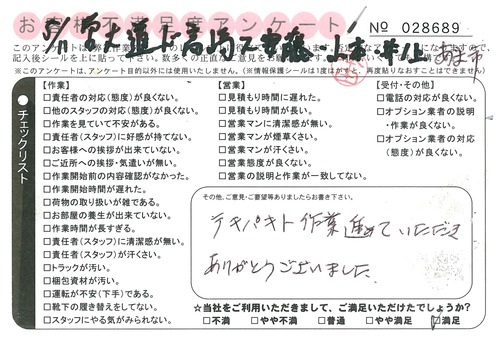 お客様不満足度アンケート
No 028689
【作業】
□責任者の対応(態度)が良くない。
□他のスタッフの対応(態度)が良くない。
□作業を見ていて不安がある。
□責任者(スタッフ)に好感が持てない。
□お客様への挨拶が出来ていない。
□ご近所への挨拶・気遣いが無い。
□作業開始前の内容確認がなかった。
□作業開始時間が遅れた。
□荷物の取り扱いが雑である。
□お部屋の養生が出来ていない。
□作業時間が長すぎる。
□責任者(スタッフ)に清潔感が無い。
□責任者(スタッフ)が汗くさい。
□トラックが汚い。
□梱包資材が汚い。
□運転が不安(下手)である。
□靴下の履き替えをしてない。
□スタッフにやる気がみられない。
【営業】
□見積もり時間に遅れた。
□見積もり時間が長い。
□営業マンに清潔感が無い。
□営業マンが煙草くさい。
□営業マンが汗くさい。
□営業態度が良くない。
□営業の説明と作業が一致してない。
【受付・その他】
□電話の対応が良くない。
□オプション業者の説明
・作業が良くない。
□オプション業者の対応
(態度)が良くない。
チェックリスト
その他、ご意見・ご要望等ありましたらお書き下さい。
テキパキト作業進めていただき
ありがとうございました
☆当社をご利用いただきまして、ご満足いただけたでしょうか?
□不満 □やや不満 □普通 □やや満足 □満足